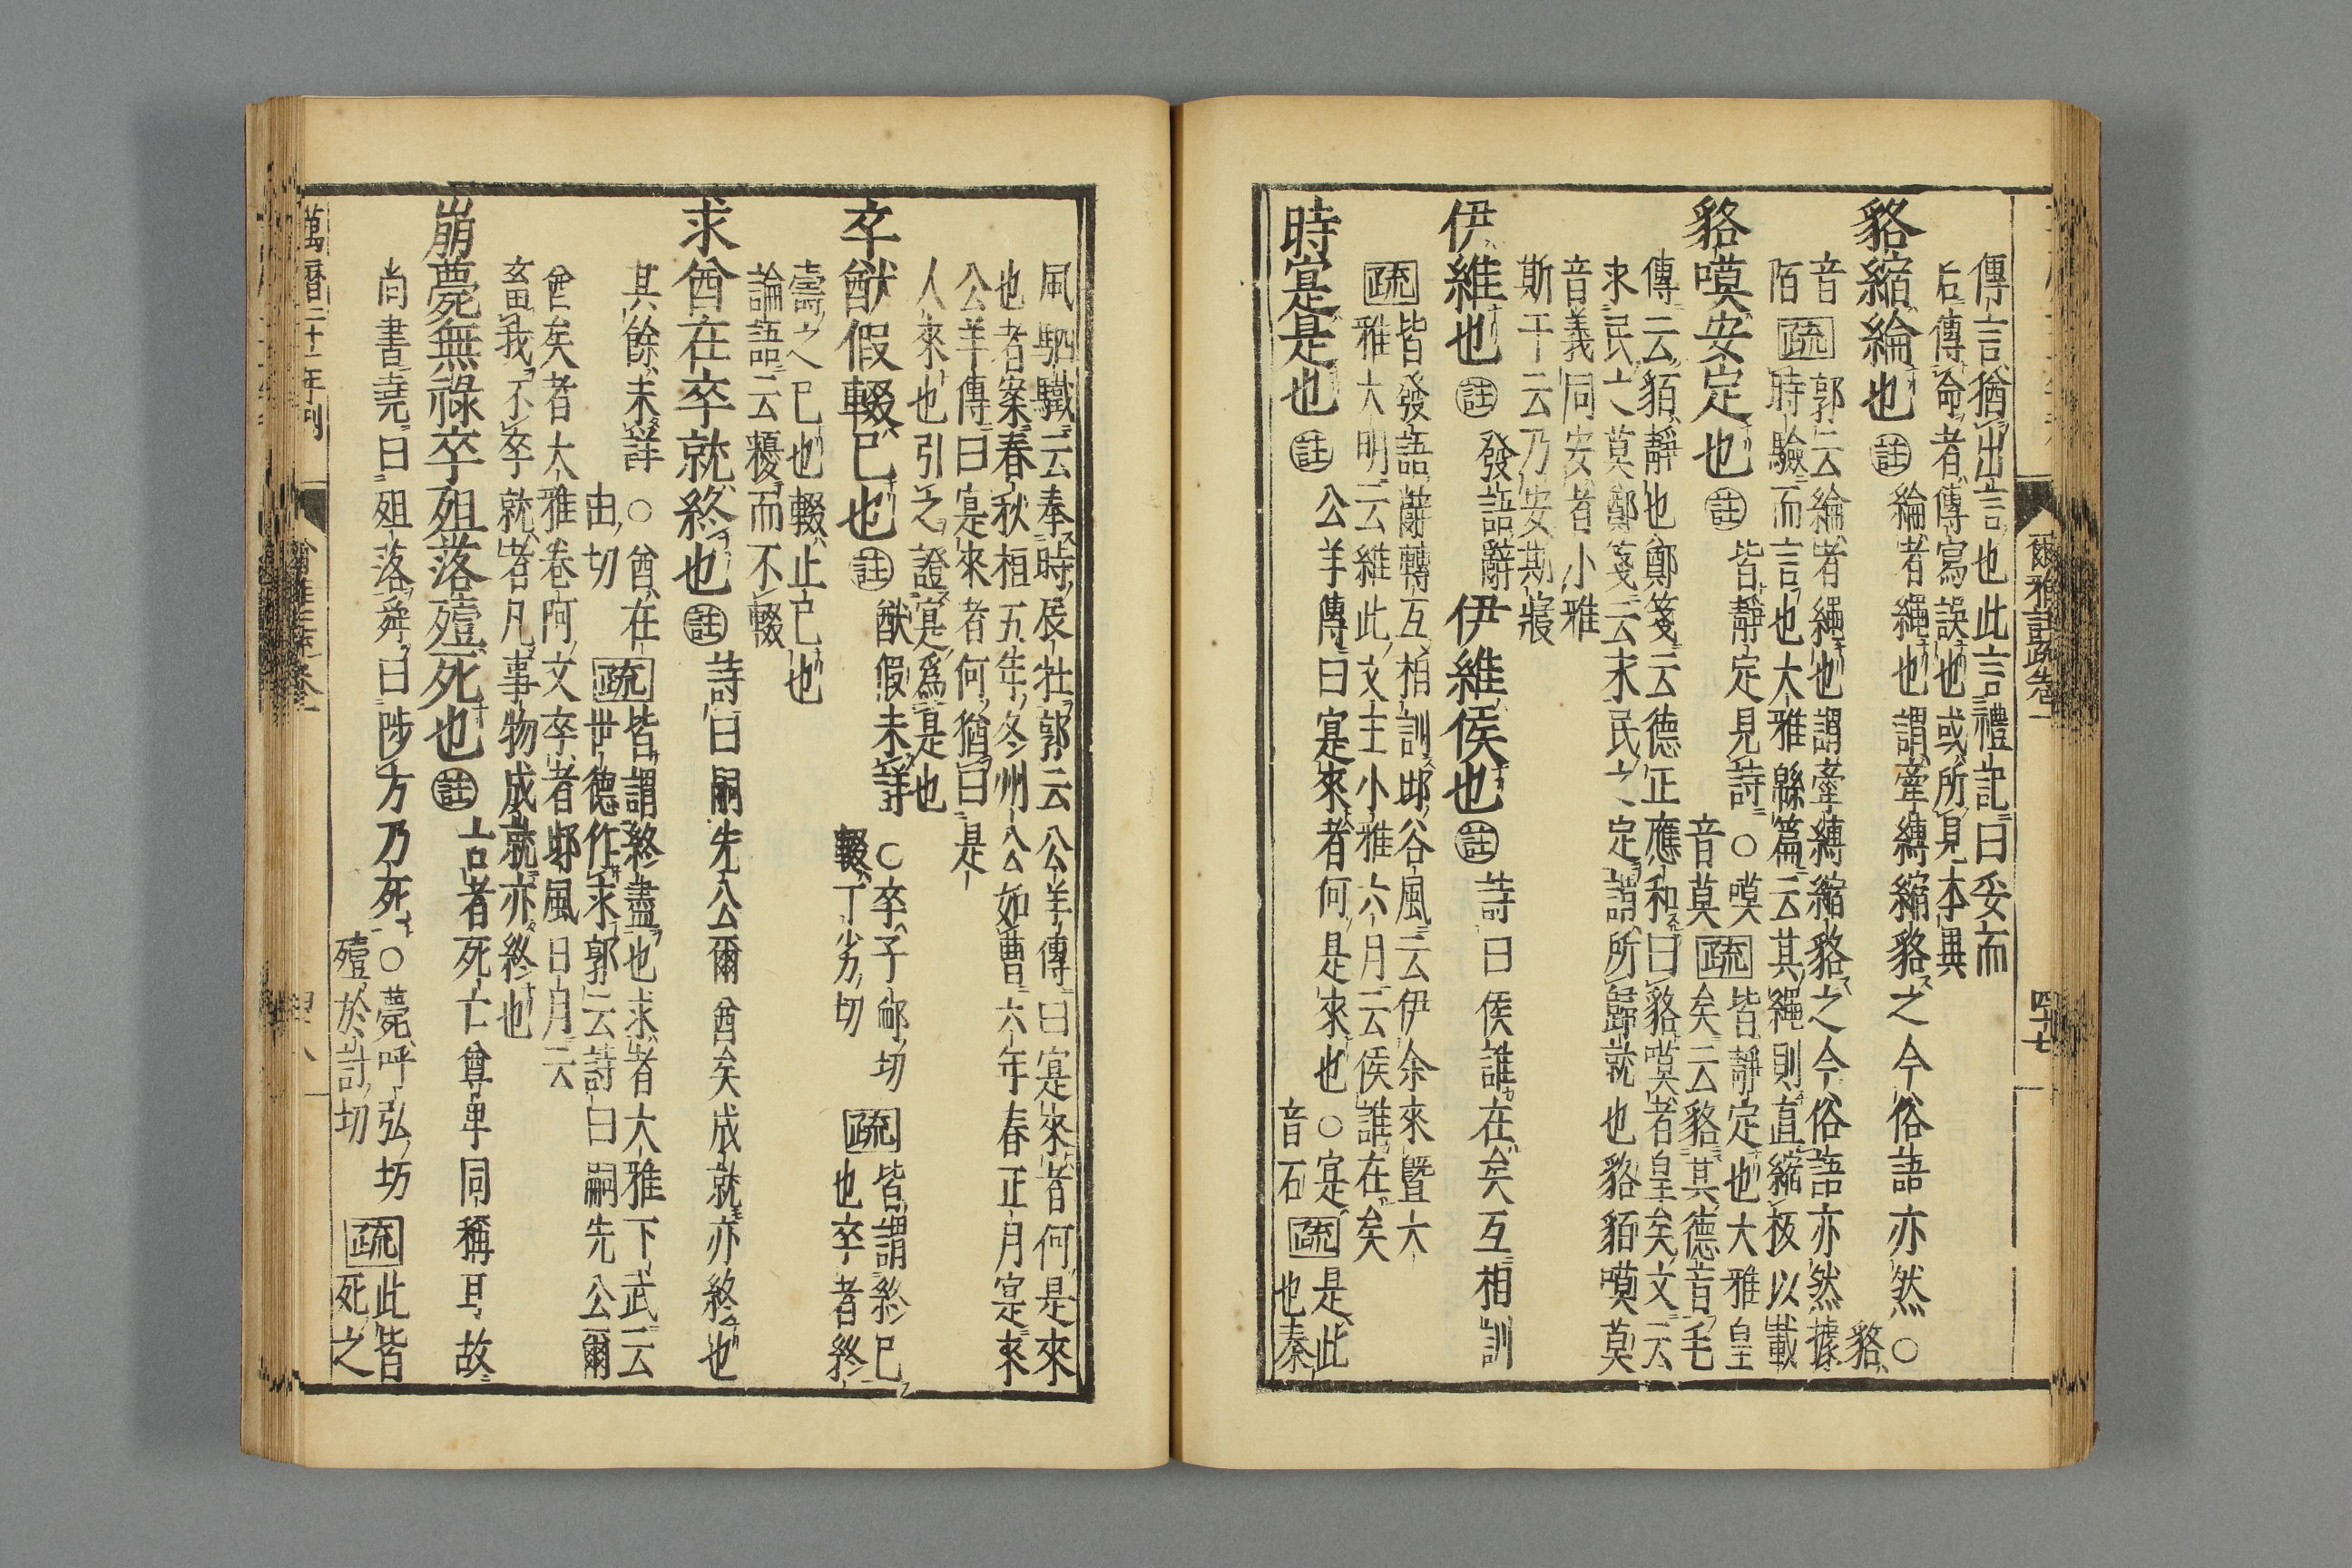 爾雅註疏卷一
四十七
傳言猶出言也此言禮記曰妥而
后傳命者傳寫誤也或所見本異
貉縮綸也註綸者繩也謂牽縛縮貉之今俗語亦然○貉
音陌疏郭云綸者繩也謂牽縛縮貉之今俗語亦然據
時驗而言也大雅緜篇云其繩則直縮板以載
貉嗼安定也註皆靜定見詩○嗼音莫疏皆靜定也大雅皇
矣云貉其德音毛
傳云貊靜也鄭箋云德正應和曰貉嗼者皇矣文云
求民之莫鄭箋云求民之定謂所歸就也貉貊嗼莫
音義同安者小雅
斯干云乃安斯寢
伊維也註發語辭伊維侯也註詩曰侯誰在矣互相訓
疏皆發語辭轉互相訓邶谷風云伊余來暨大
雅大明云維此文王小雅六月云侯誰在矣
時寔是也註公羊傳曰寔來者何是來也○寔音石疏是此
也秦
風駟驖云奉時辰牡郭云公羊傳曰寔來者何是來
也者案春秋桓五年冬州公如曹六年春正月寔來
公羊傳曰寔來者何猶曰是
人來也引之證寔爲是也
卒猷假輟已也註猷假未詳○卒子䘏切輟丁劣切疏皆謂終已
也卒者終
壽之已也輟止已也
論語云耰而不輟
求酋在卒就終也註詩曰嗣先公爾酋矣成就亦終也
其餘未詳○酋在由切疏皆謂終盡也求者大雅下武云
世德作求郭云詩曰嗣先公爾
酋矣者大雅卷阿文卒者邶風日月云
畜我不卒就者凡事物成就亦終也
崩薨無祿卒殂落殪死也註古者死亡尊卑同稱耳故
尚書堯曰殂落舜曰陟方乃死○薨呼弘切殪於計切疏此皆
死之
萬曆二十一年刊